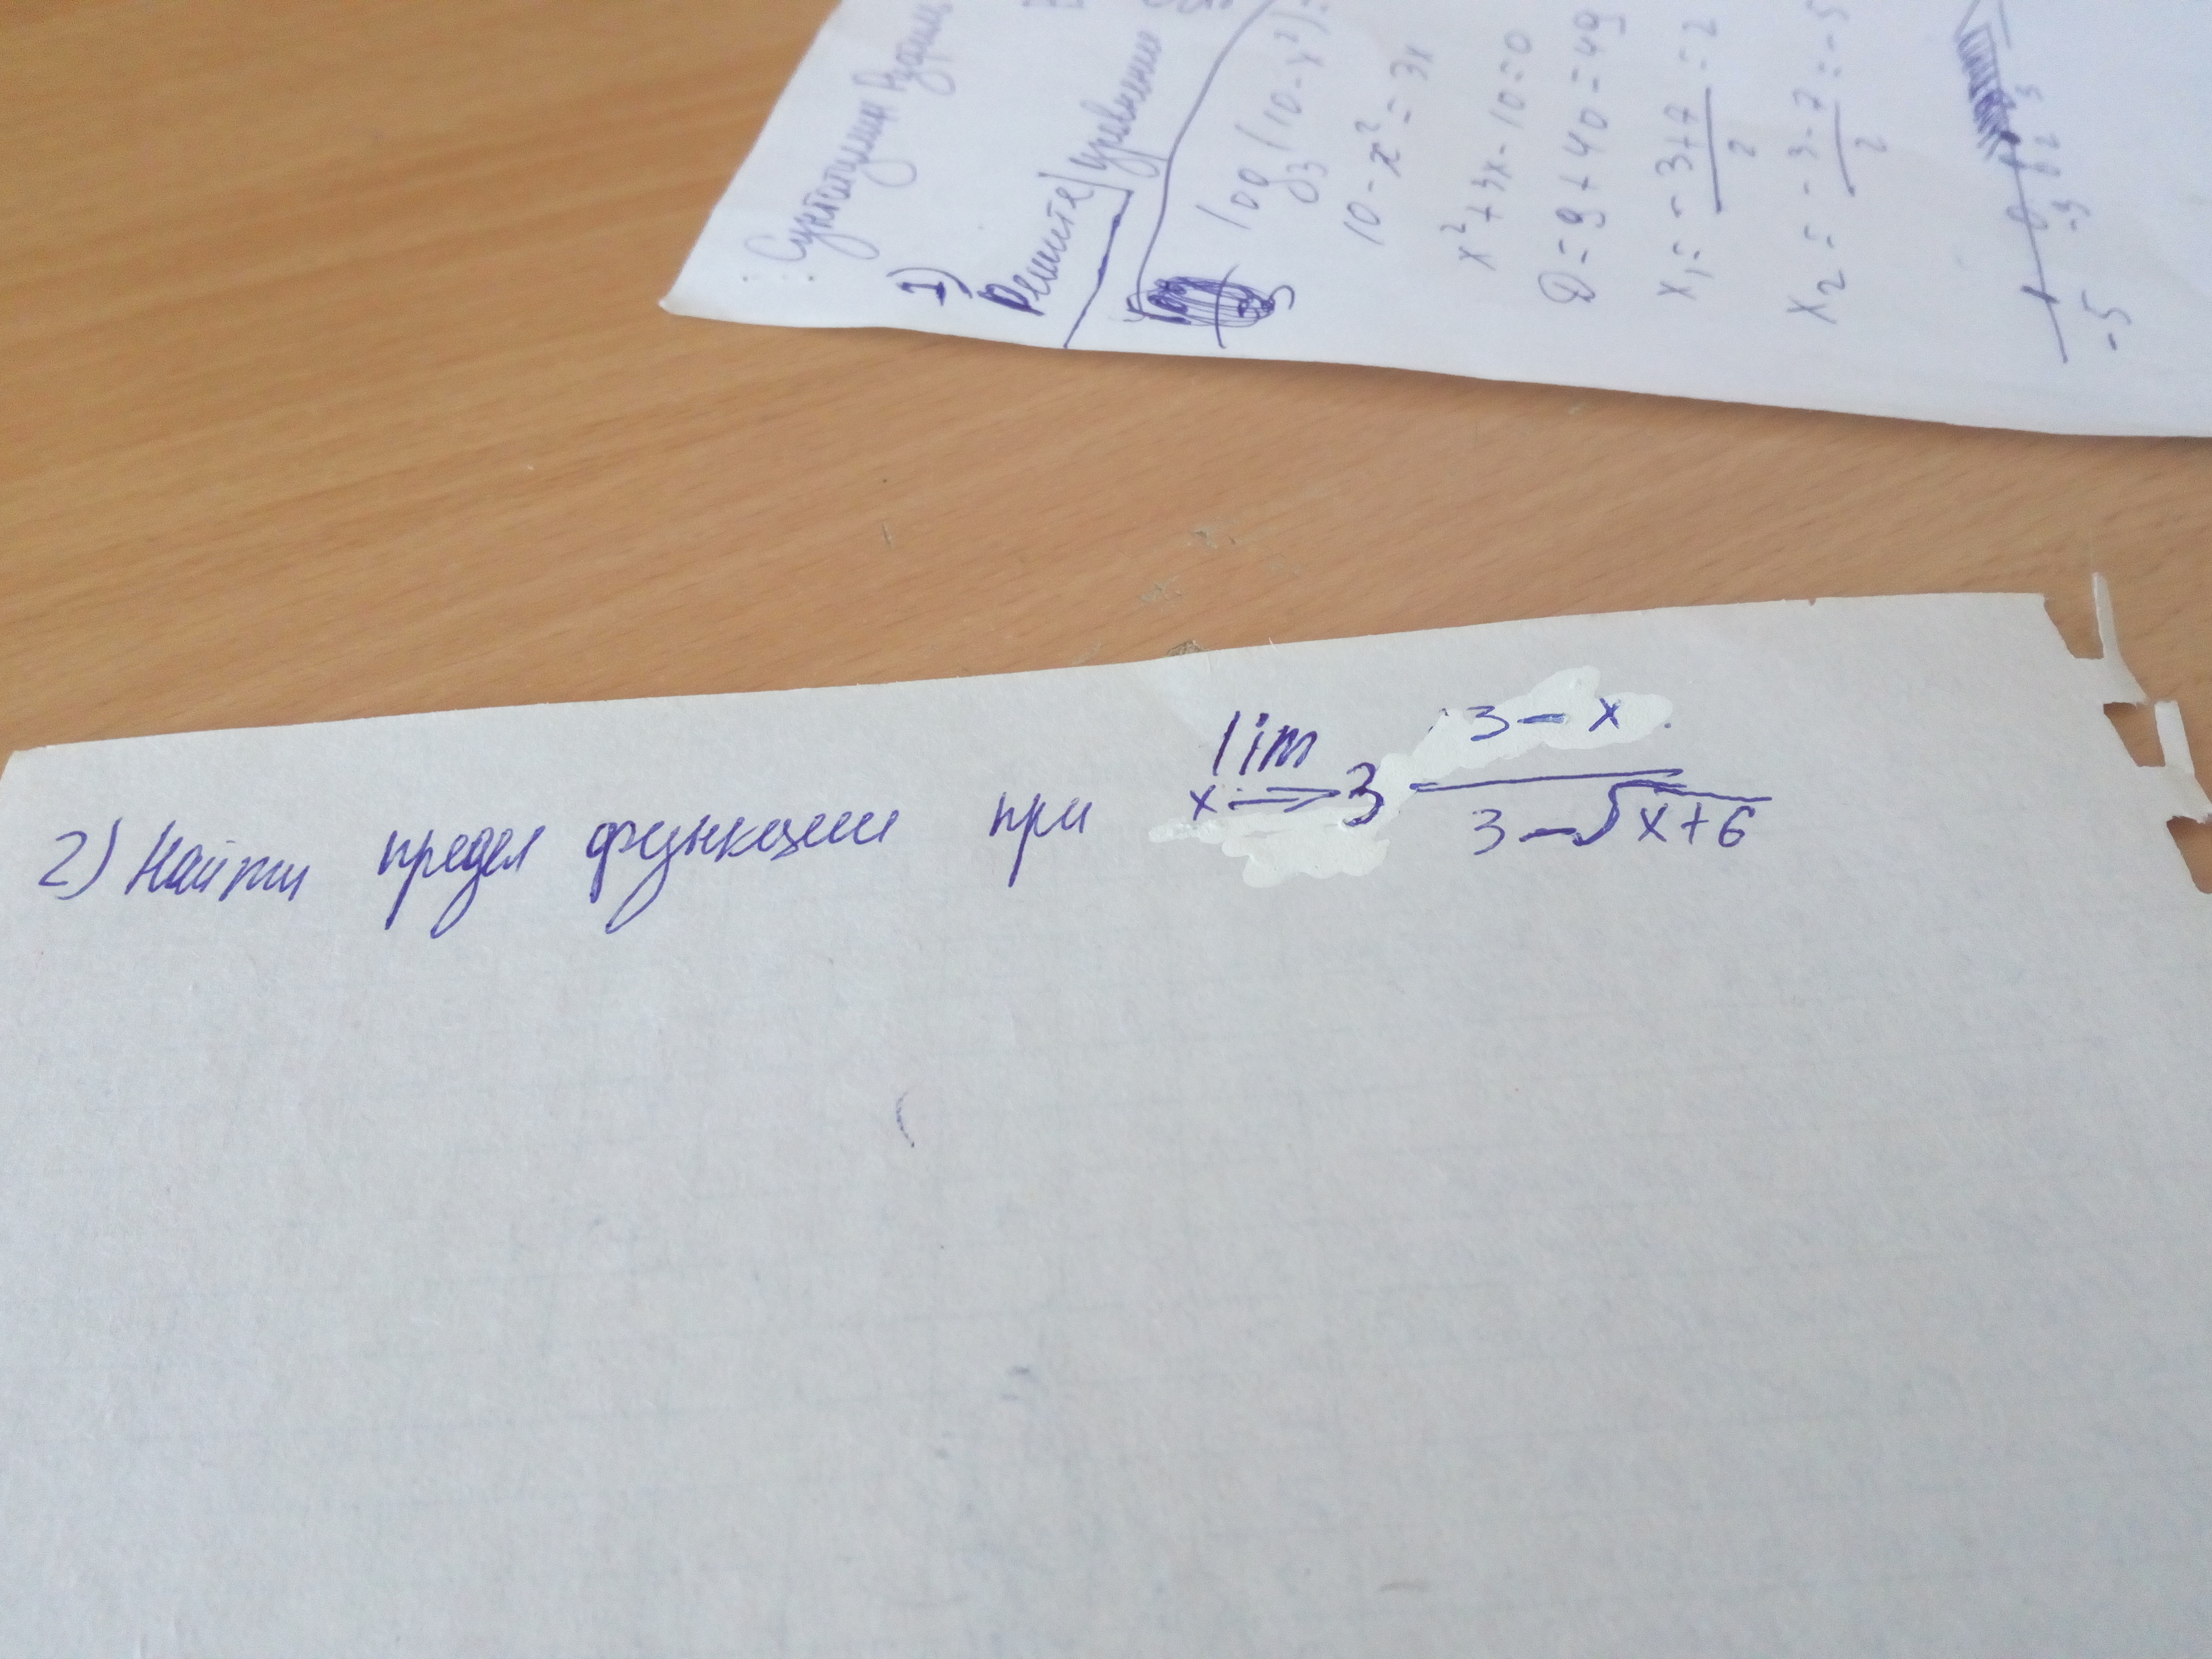 1)
Решите уравнение
log₃(10-x²)=
10-x²=3x
x²+3x-10=0
D=9+40=49
x₁=-3+7/2=2
x₂=-3-7/2=-5
-5 -3 0 2 3
2) Найти предел функции при lim x→3 3-x/3-√x+6